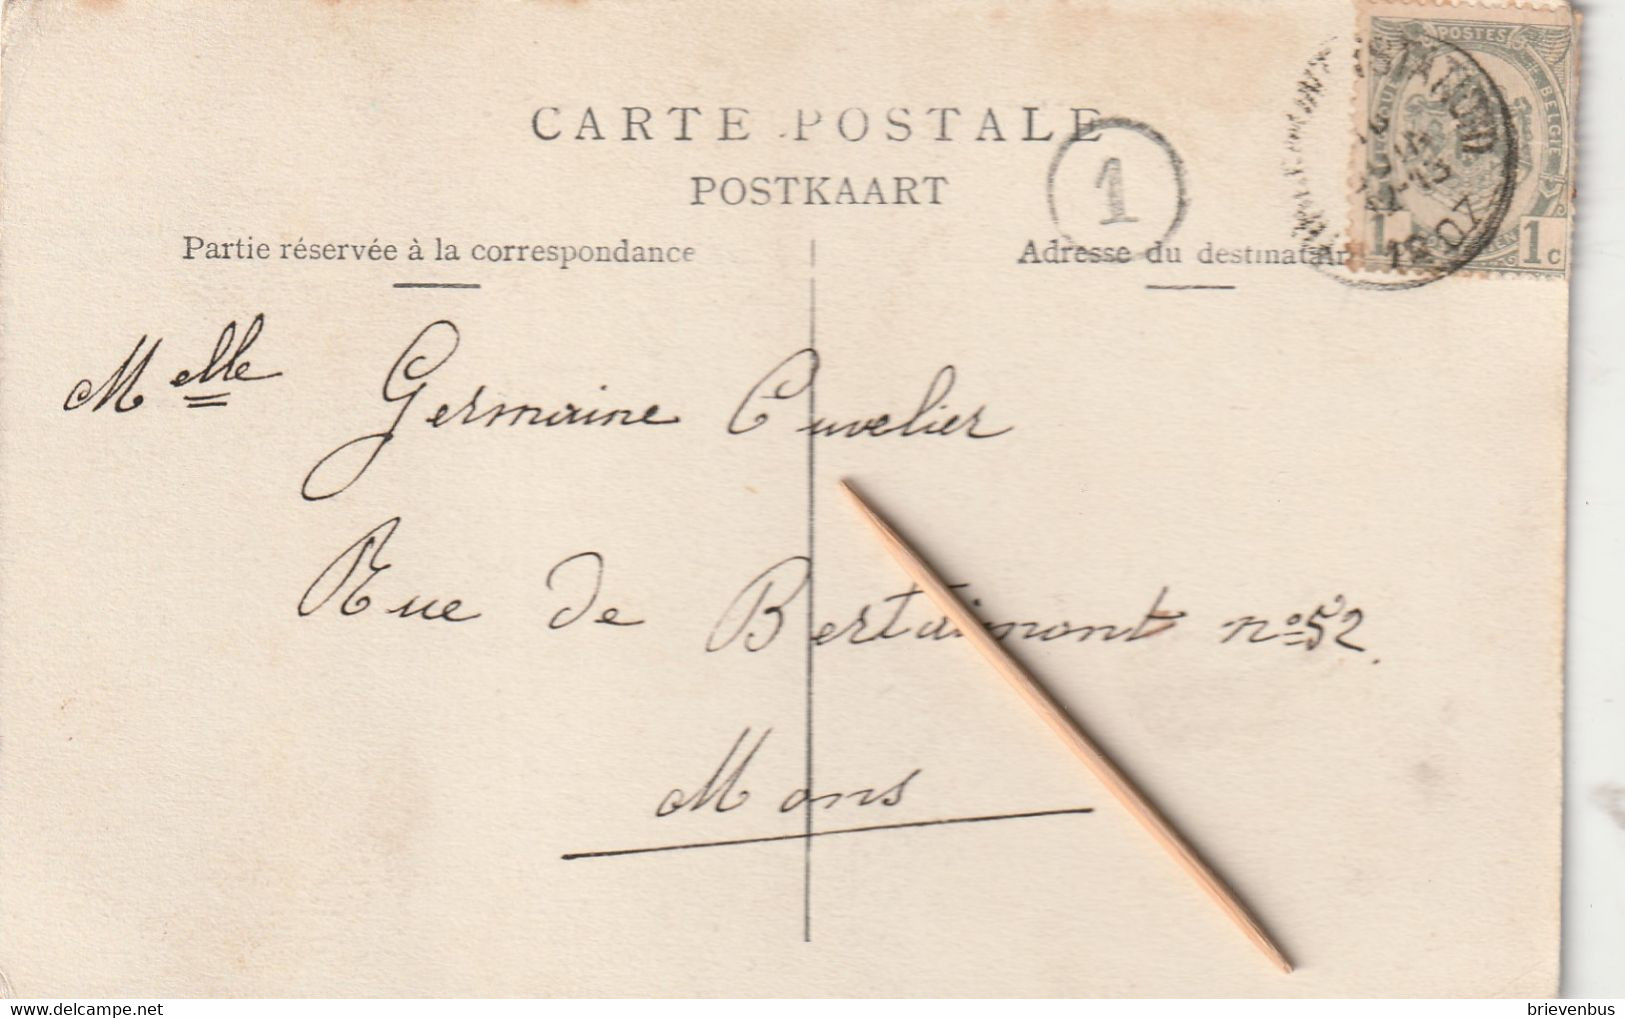 CARTE POSTALE
POSTKAART
1
Partie réservée à la correspondance
Adresse du destinatair
POSTES
BELGIE
1 1c
Melle Germaine Cuvelier
Rue de Bertaimont no 52.
Mons
delcampe.net
brievenbus